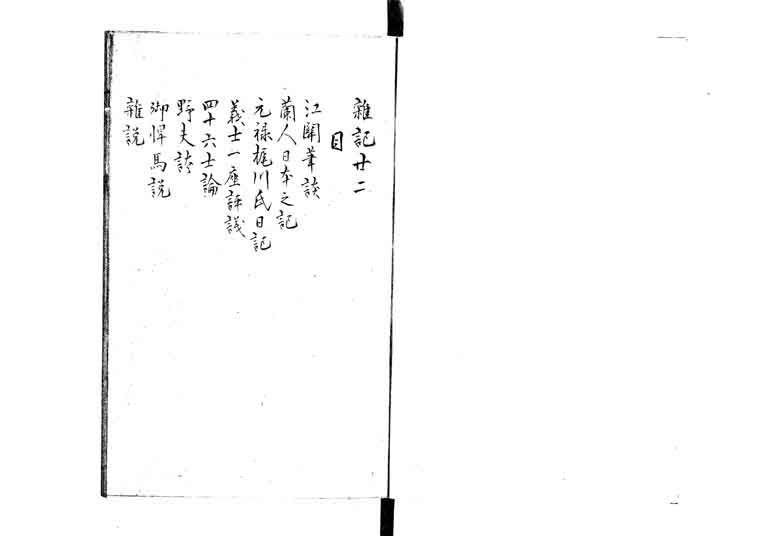 雜記廿二
目
江關筆談
蘭人日本之記
元禄梶川氏日記
義士一座評議
四十六士論
野夫談
御悍馬説
雜説